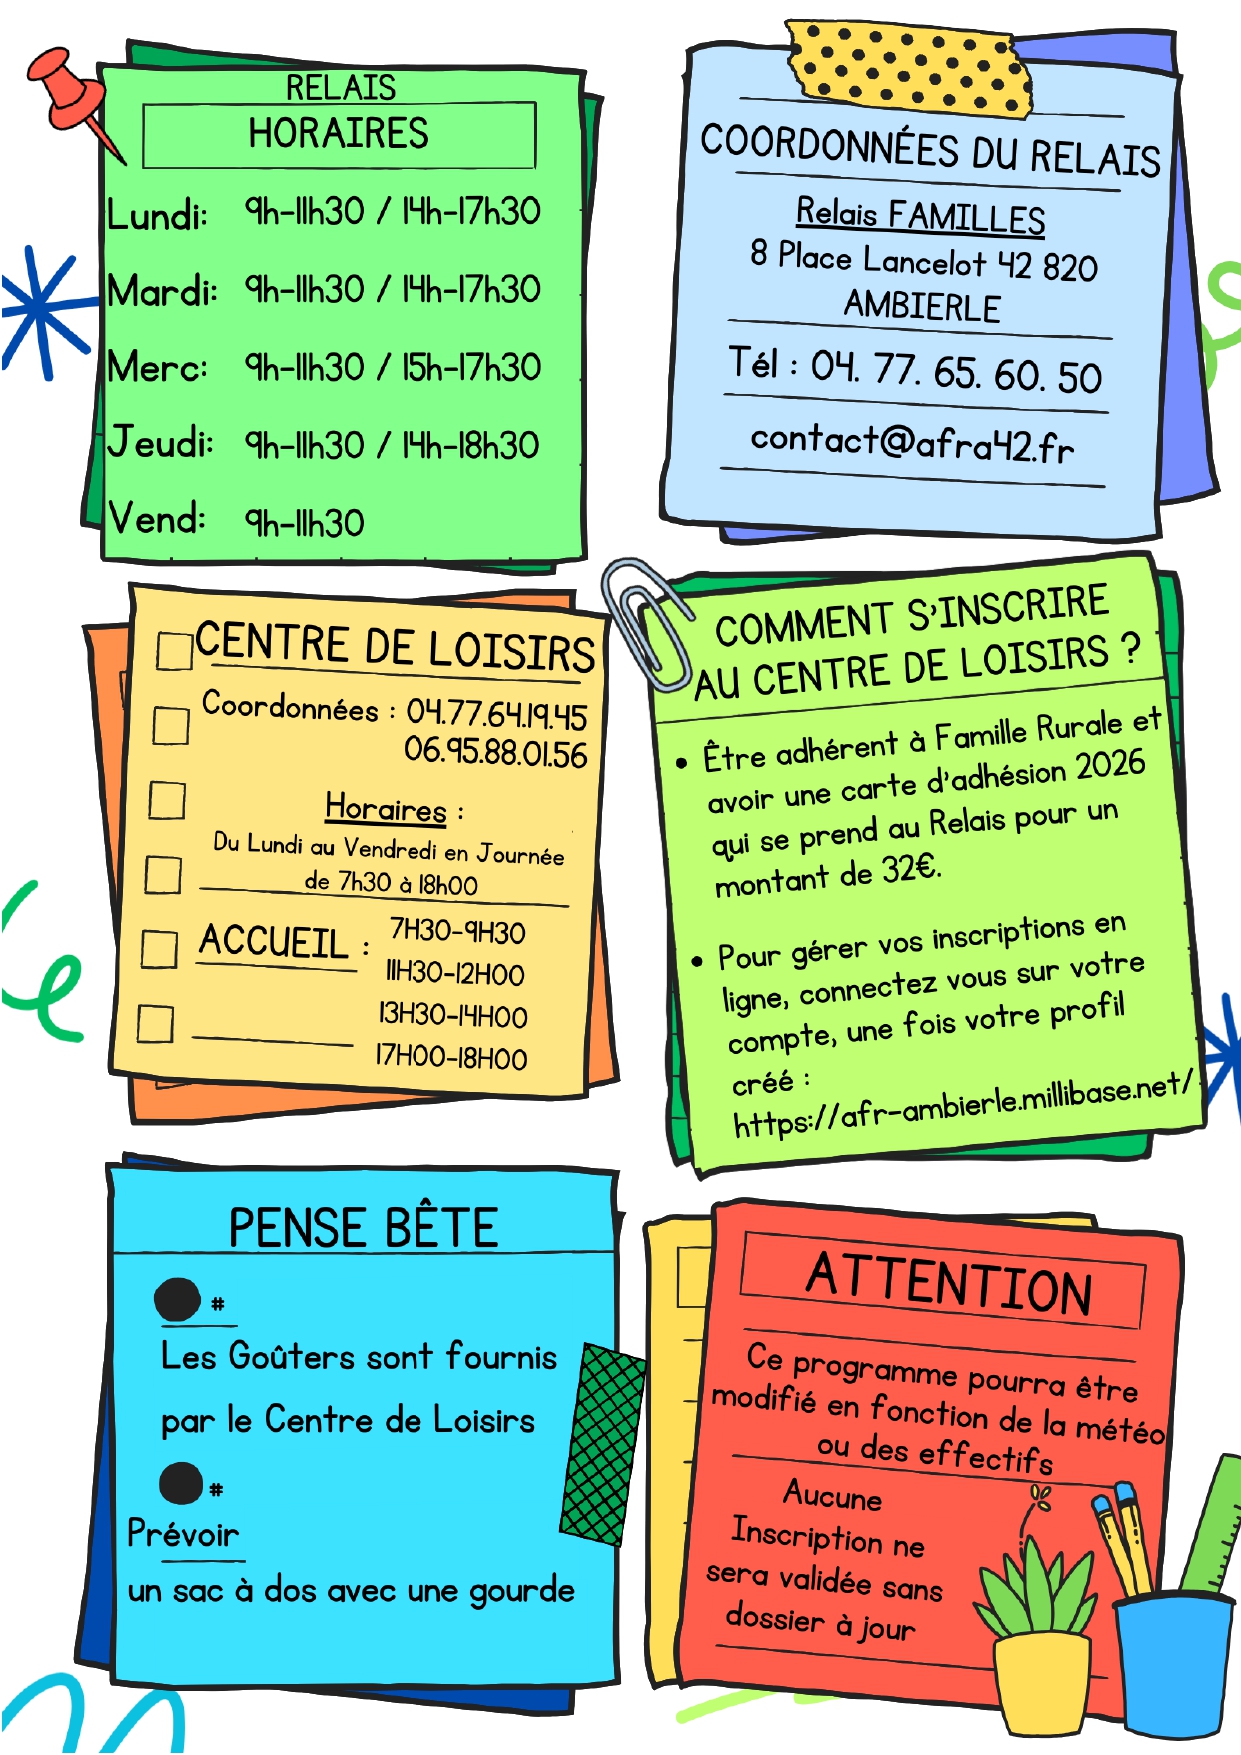 RELAIS
HORAIRES
Lundi: 9h-11h30 / 14h-17h30
Mardi: 9h-11h30 / 14h-17h30
Merc: 9h-11h30 / 15h-17h30
Jeudi: 9h-11h30 / 14h-18h30
Vend: 9h-11h30
COORDONNÉES DU RELAIS
Relais FAMILLES
8 Place Lancelot 42 820
AMBIERLE
Tél : 04. 77. 65. 60. 50
contact@afra42.fr
CENTRE DE LOISIRS
Coordonnées : 04.77.64.19.45
06.95.88.01.56
Horaires :
Du Lundi au Vendredi en Journée
de 7h30 à 18h00
ACCUEIL : 7H30-9H30
11H30-12H00
13H30-14H00
17H00-18H00
COMMENT S'INSCRIRE
AU CENTRE DE LOISIRS ?
• Être adhérent à Famille Rurale et
avoir une carte d'adhésion 2026
qui se prend au Relais pour un
montant de 32€.
• Pour gérer vos inscriptions en
ligne, connectez vous sur votre
compte, une fois votre profil
créé :
https://afr-ambierle.millibase.net/
PENSE BÊTE
#
Les Goûters sont fournis
par le Centre de Loisirs
#
Prévoir
un sac à dos avec une gourde
ATTENTION
Ce programme pourra être
modifié en fonction de la météo
ou des effectifs
Aucune
Inscription ne
sera validée sans
dossier à jour